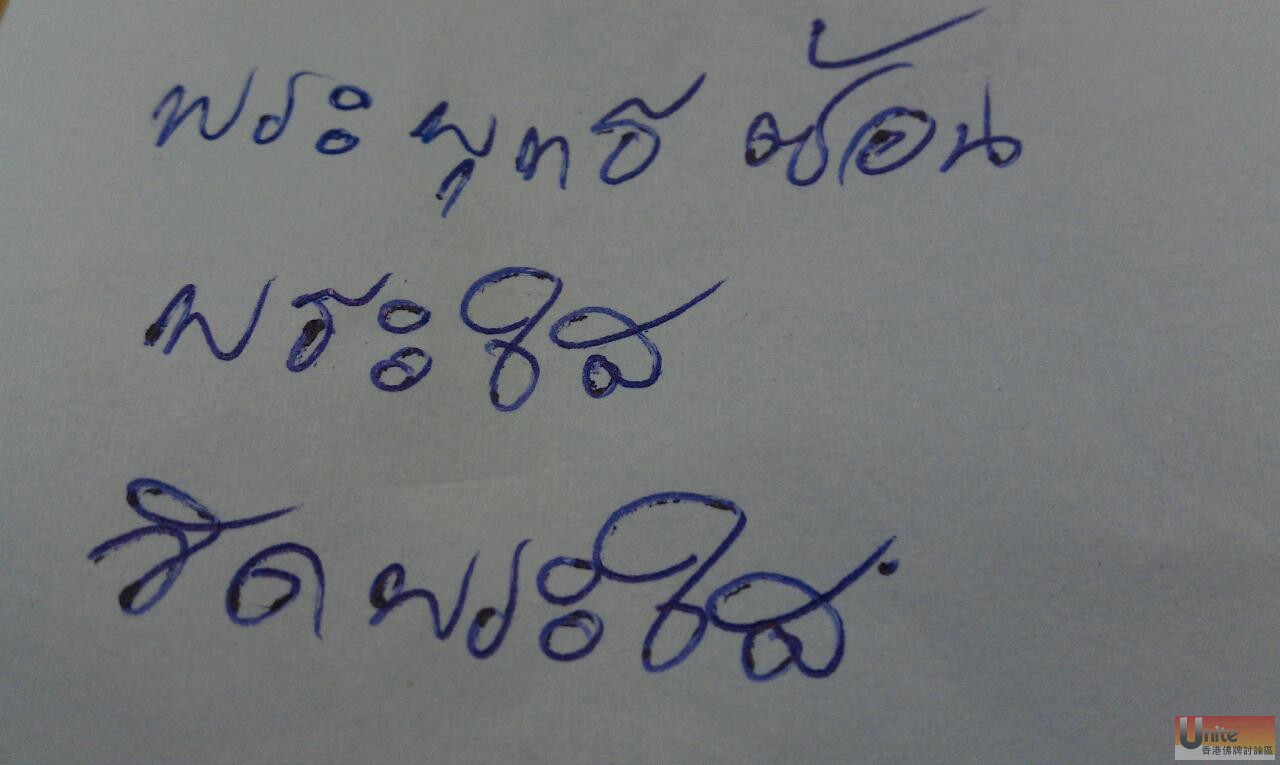 พระพุทธ ซ้อน
พระใส
วัดพระใส
Unite
香港佛牌討論區